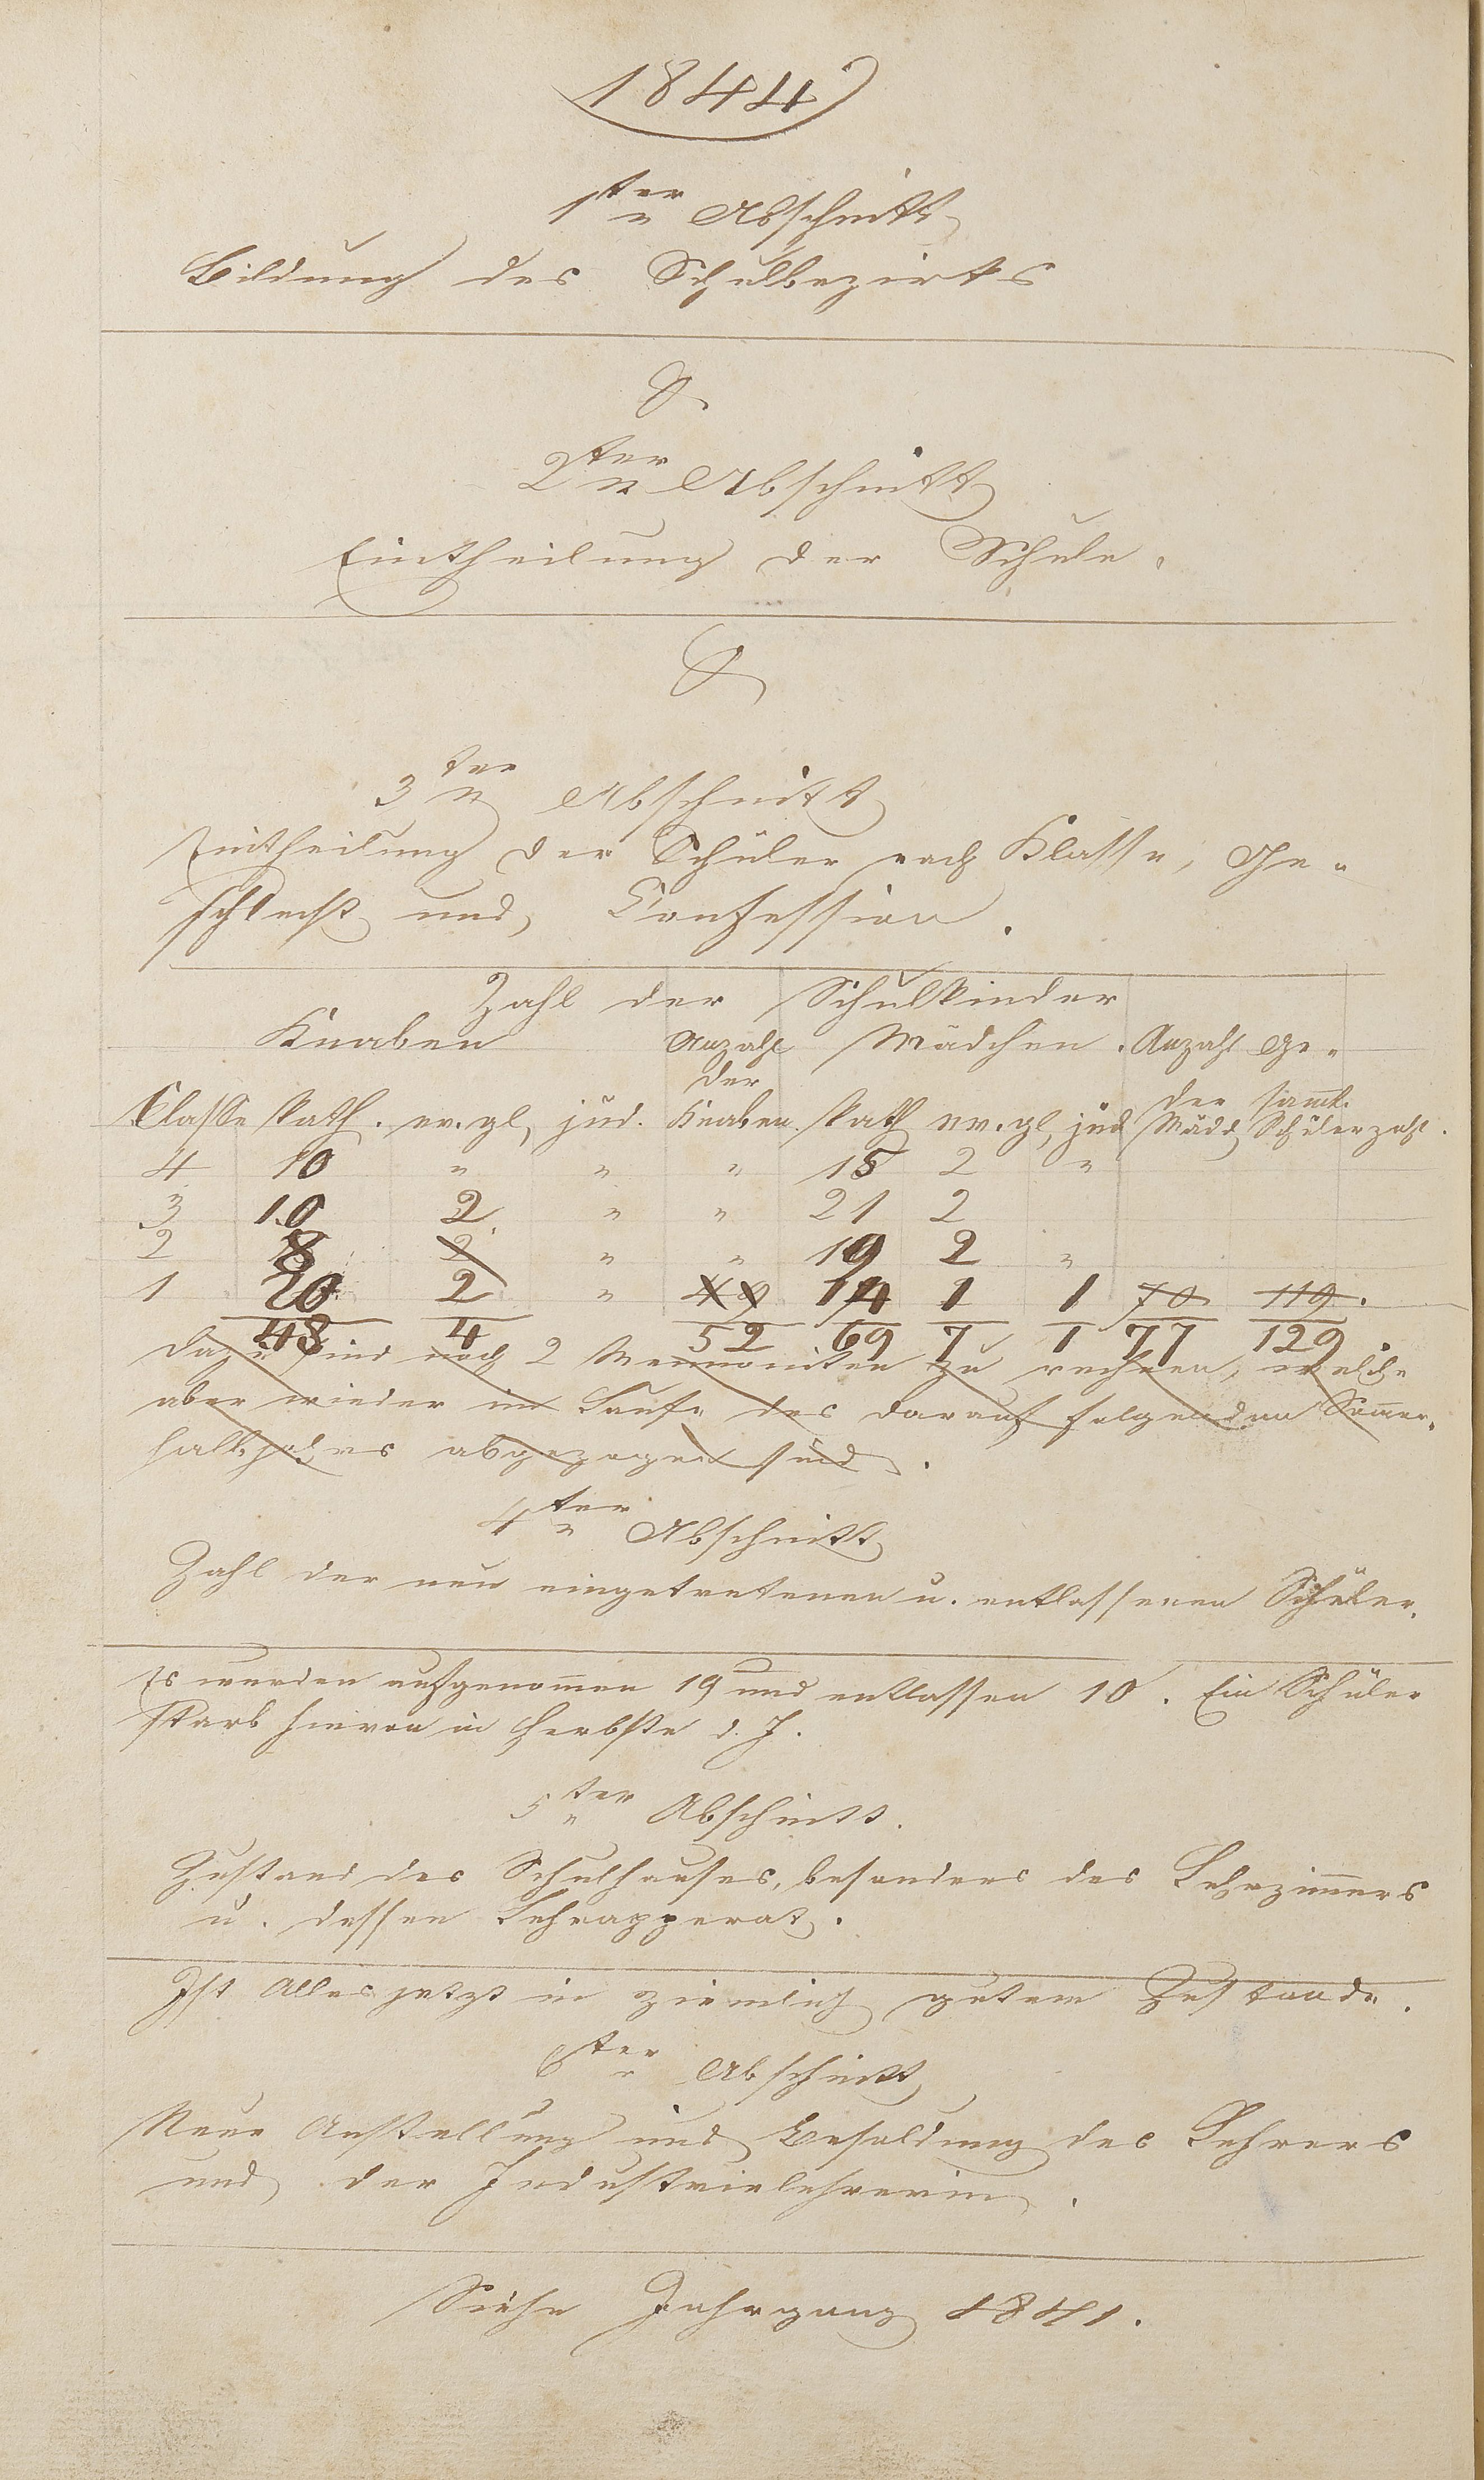 1844
1ter Abschnitt
Bildung des Schulbezirks
2ter Abschnitt
Eintheilung der Schule.
3ter Abschnitt
Eintheilung der Schüler nach Klasse, Ge-
schlecht und Confession.
Zahl der Schulkinder
Knaben Anzahl Mädchen. Anzahl Ge-
der
der samt.
Classe kath. ev.gl. jud. Knaben. kath ev.gl. jud Mädch Schülerzahl.
4 10 " " " 15 2 "
3 10 2 " " 21 2
2 8 2 " " 19 2 "
1 20 2 " 49 14 1 1 70 119.
48 4 52 69 7 1 77 129
Dazu sind noch 2 Mennoniten zu rechnen, welche
aber wieder im Laufe des darauf folgenden Som̄er-
halbjahres abgezogen sind.
4ter Abschnitt
Zahl der neu eingetretenen u. entlassenen Schüler.
Es wurden aufgenom̄en 19 und entlassen 10. Ein Schüler
starb hievon im Herbste d. J.
5ter Abschnitt.
Zustand des Schulhauses, besonders des Lehrzim̄ers
u. dessen Lehrapperat.
Ist Alles jetzt in ziemlich gutem Zustande.
6ter Abschnitt
Neue Anstellung und Besoldung des Lehrers
und der Industrielehrerin.
Siehe Jahrgang 1841.